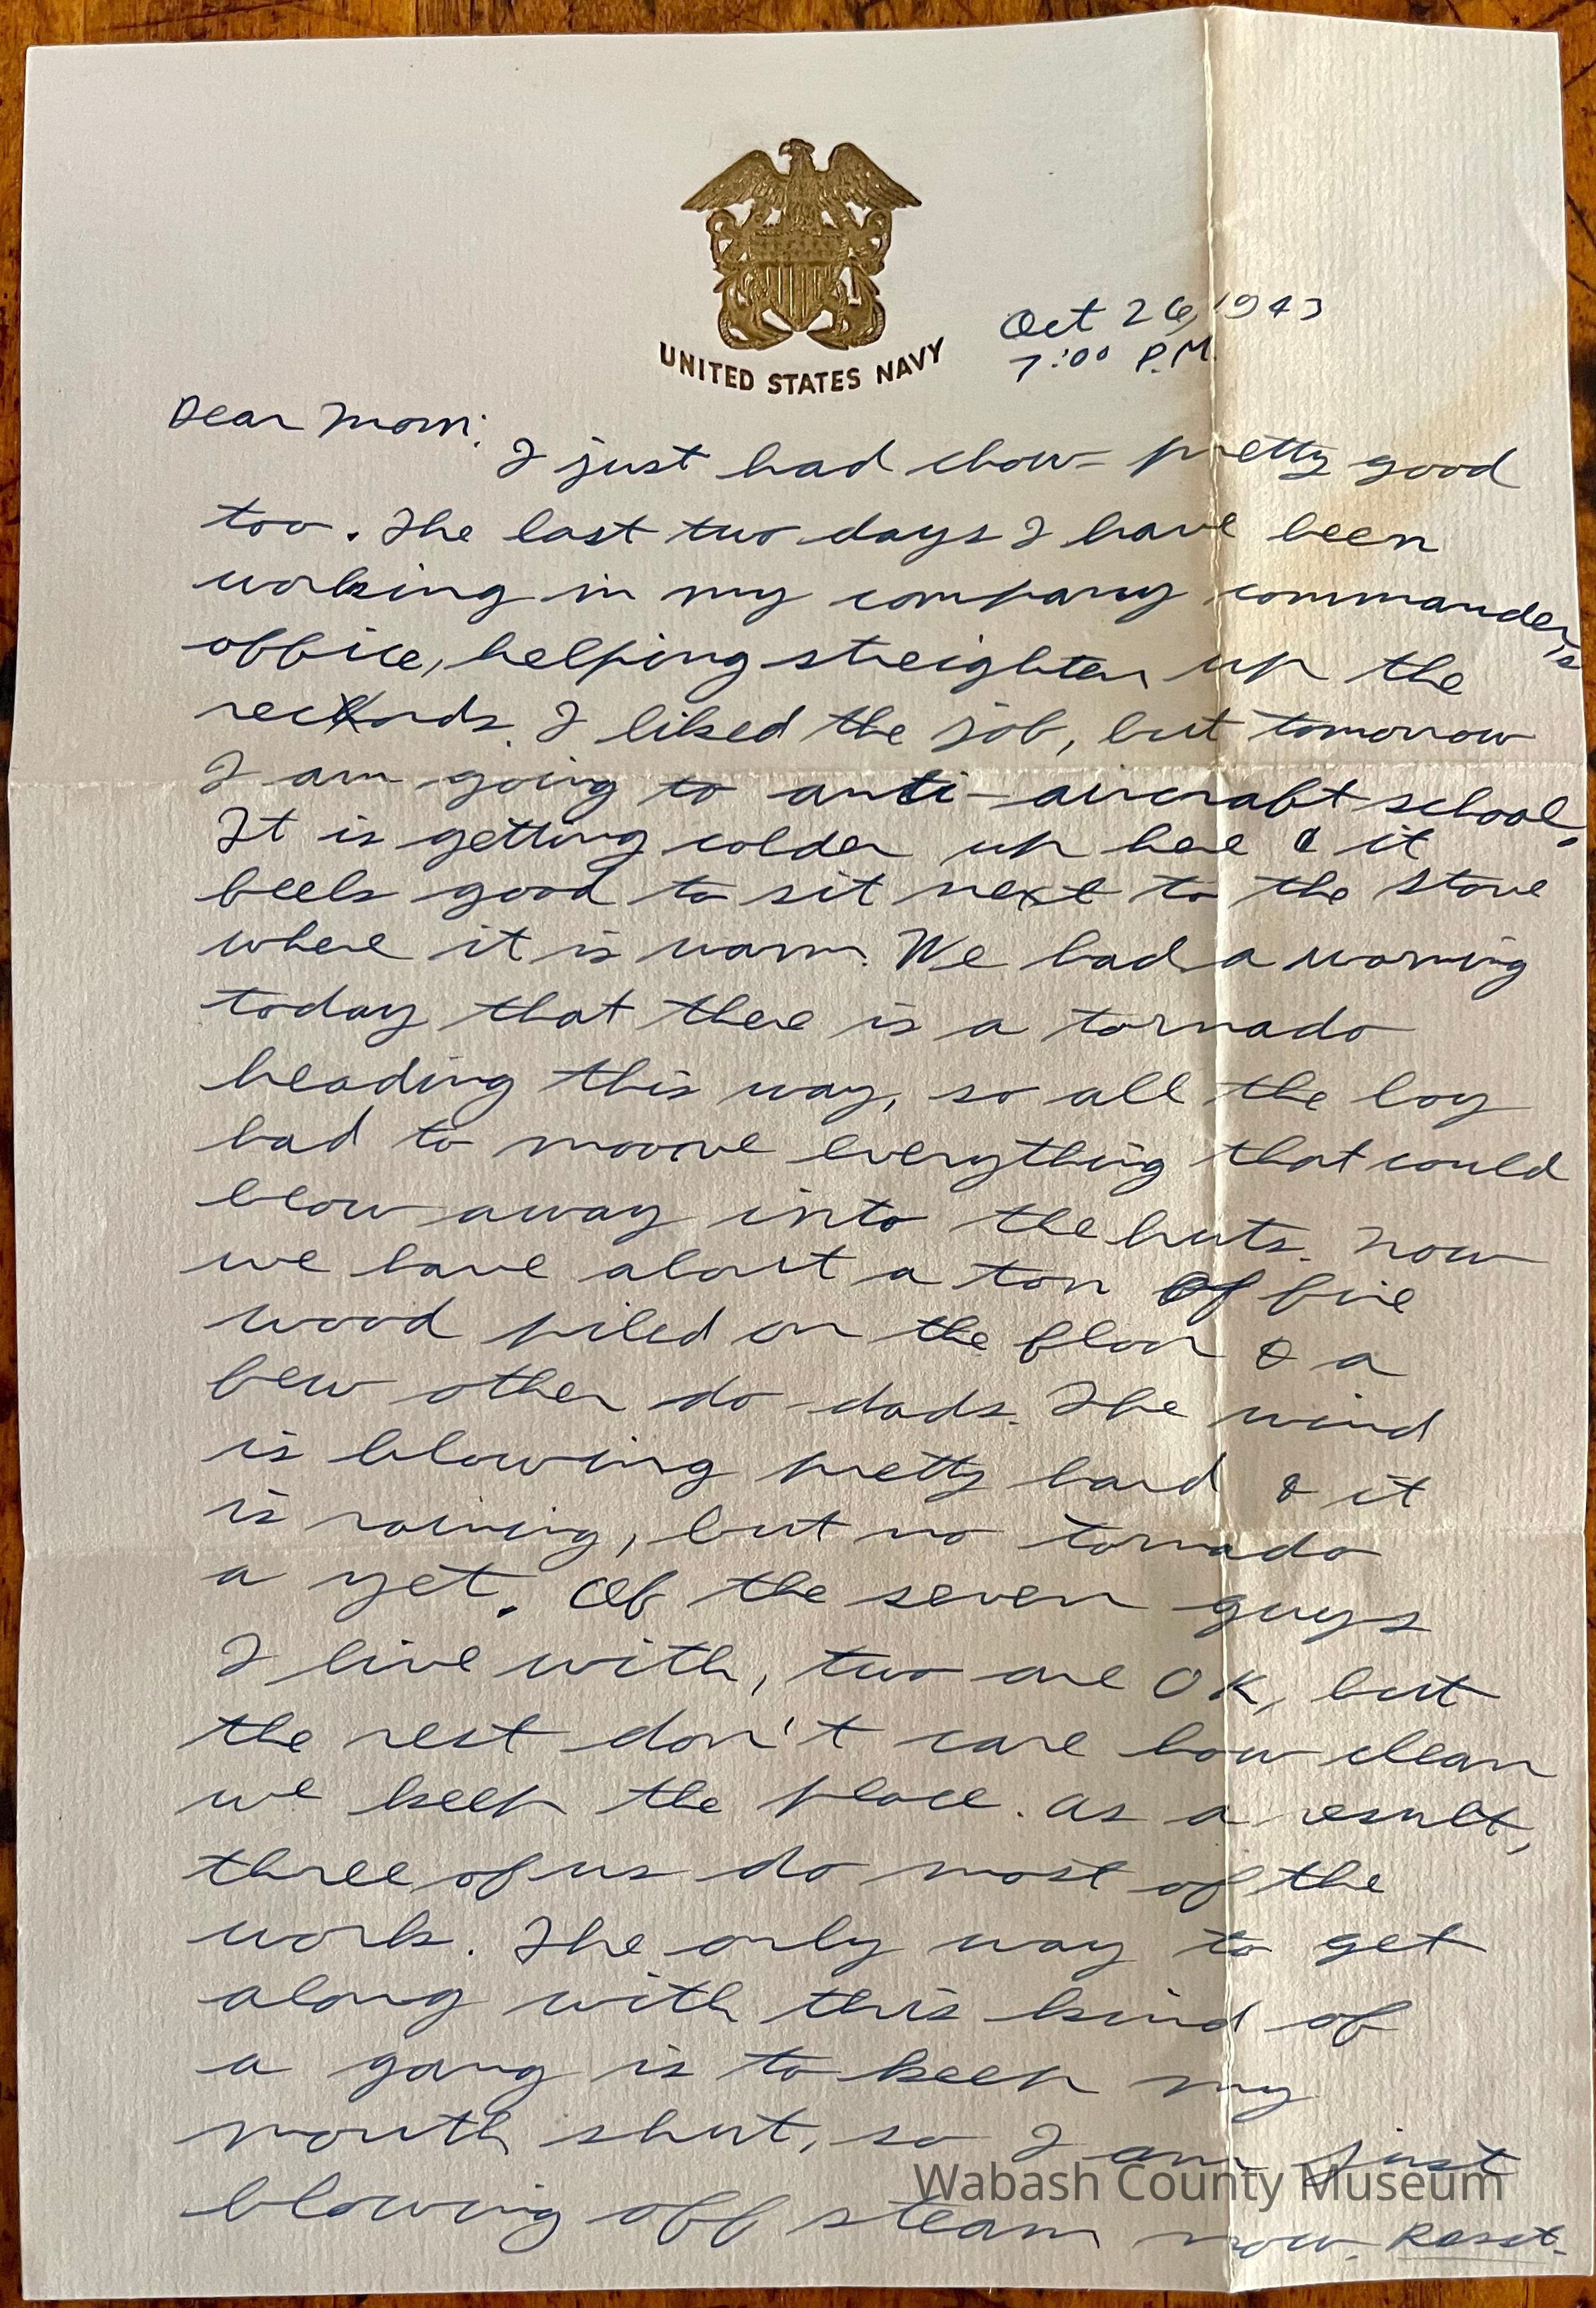 UNITED STATES NAVY
Oct 26, 1943
7:00 P.M.
Dear Mom:
I just had chow – pretty good
too. The last two days I have been
working in my company commander's
office, helping streighten up the
records. I liked the job, but tomorrow
I am going to anti-aircraft school.
It is getting colder up here & it
feels good to sit next to the stove
where it is warm. We had a warning
today that there is a tornado
heading this way, so all the boy
had to moove everything that could
blow away into the huts. Now
we have about a ton of fire
wood piled on the floor & a
few other do dads. The wind
is blowing pretty hard & it
is raining, but no tornado
a yet. Of the seven guys
I live with, two are OK, but
the rest don't care how clean
we keep the place. As a result,
three of us do most of the
work. The only way to get
along with this kind of
a gang is to keep my
mouth shut, so I am just
blowing off steam now.
Wabash County Museum